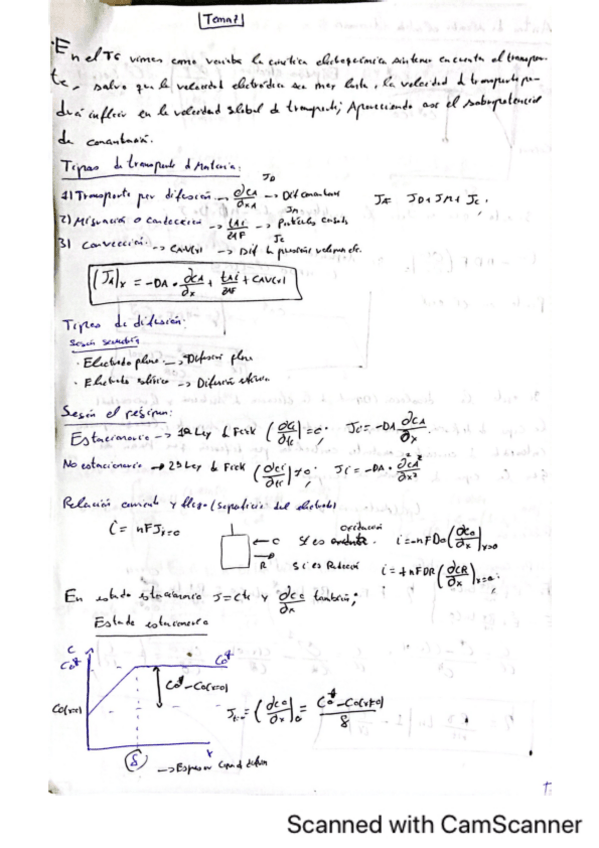 Tema 7
En el T6 vimos como variaba la cinética electroquímica sin tener en cuenta el transpor-
te, salvo que la velocidad electródica sea muy lenta, la velocidad d transporte po-
drá influir en la velocidad global de transporte; Apareciendo así el sobrepotencial
de concentración.
Tipos de transporte d Materia:
1) Transporte por difusión → ∂CA/∂xA → Dif concentracion JD
2) Migración o conducción → tAi/zAF → Partículas cargadas JM
3) Convección → CAV(x) → Dif d presión Jc
J = JD + JM + Jc
(JA)x = -DA · ∂CA/∂x + tAi/zAF + CAV(x)
Tipos de difusión:
Según geometría
· Electrodo plano → Difusión plana
· Electrodo esférico → Difusión esférica
Según el régimen:
Estacionario → 1ª Ley d Fick (∂Ci/∂t) = 0; Ji = -DA ∂CA/∂x
No estacionario → 2ª Ley d Fick (∂Ci/∂t) ≠ 0; Ji = -DA · ∂²CA/∂x²
Relación corriente y flujo (superficie del electrodo)
i = nFJx=0
O
R
Si es oxidación i = -nFDo(∂Co/∂x)x=0
Si es Reducción i = +nFDR(∂CR/∂x)x=0
En estado estacionario J = cte y ∂Co/∂x también;
Estado estacionario
C
Co*
Co*
Co* - Co(x=0)
Co(x=0)
Jx=0 = (∂Co/∂x)0 = Co* - Co(x=0)/δ
δ
x
→ Espesor capa d difusión
Scanned with CamScanner